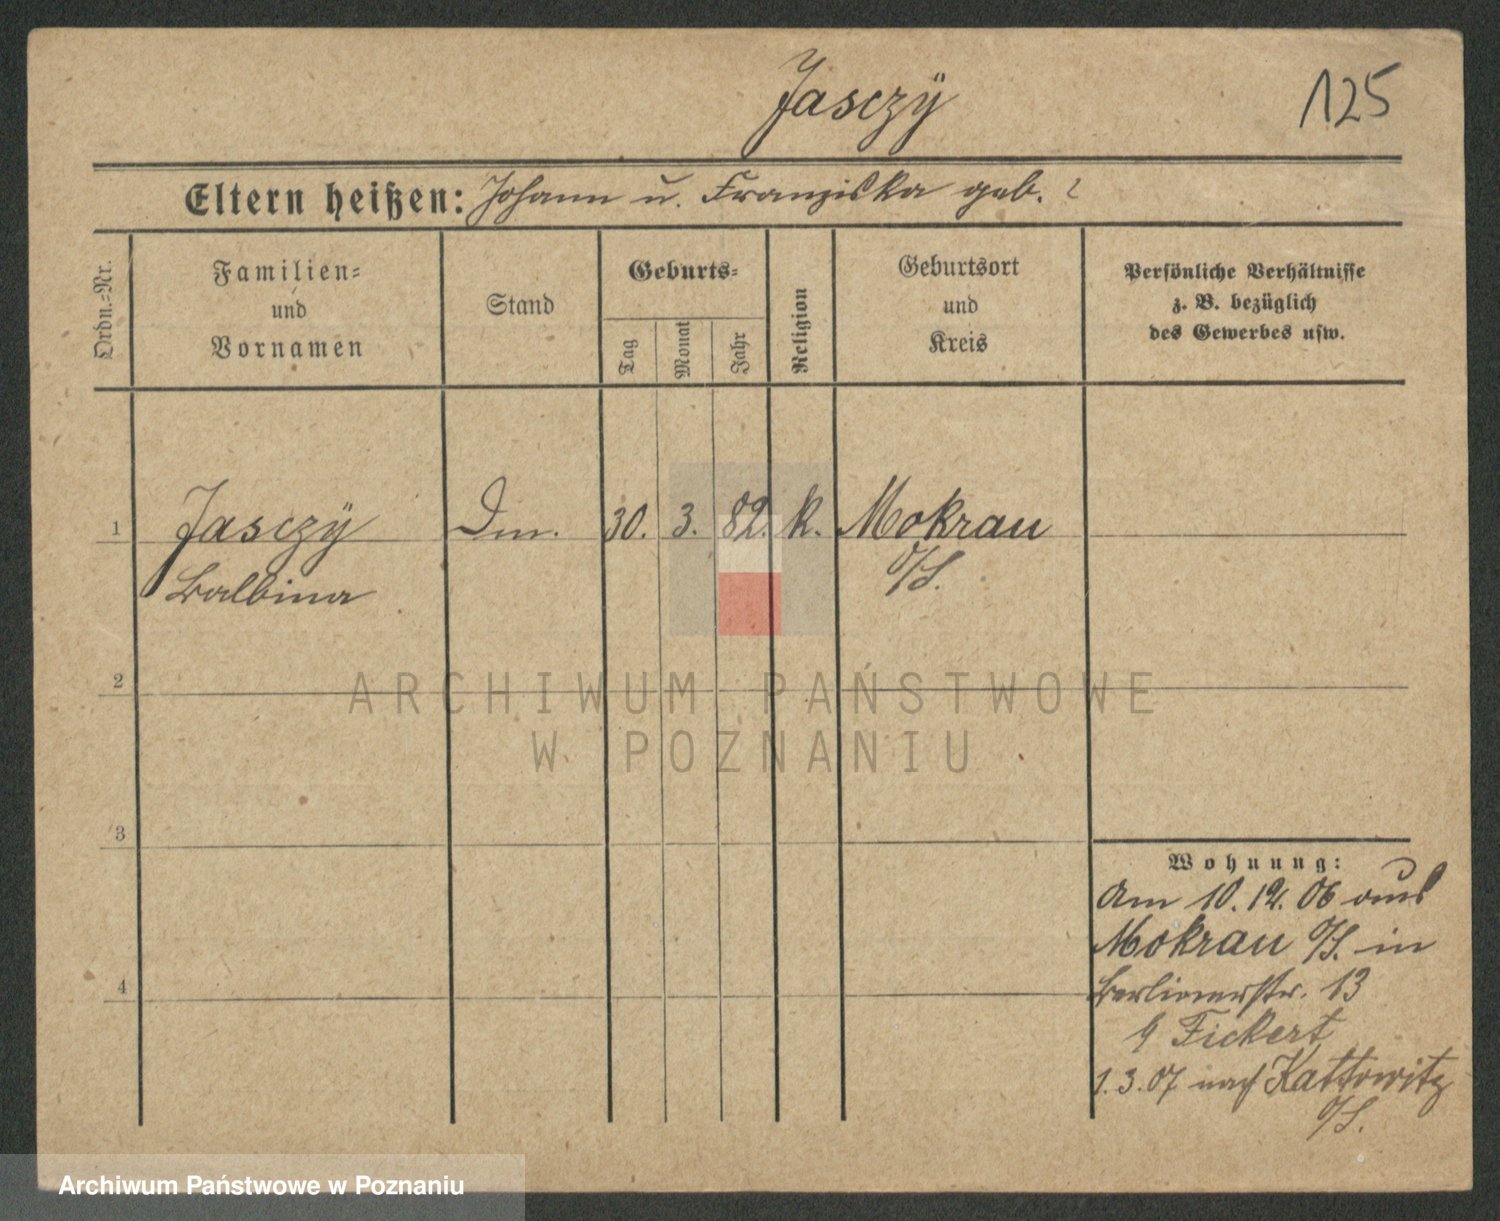 Jasczÿ
125
Eltern heißen: Johann u. Franziska geb. ?
Ordn.=Nr.
Familien=
und
Vornamen
Stand
Geburts=
Tag
Monat
Jahr
Religion
Geburtsort
und
Kreis
Persönliche Verhältnisse
z. B. bezüglich
des Gewerbes usw.
1
Jasczÿ
Balbina
Dm.
30.
3.
82.
k.
Mokrau
O/S.
2
3
4
Wohnung:
Am 10. 12. 06 aus
Mokrau O/S. in
Berlinerstr. 13
Fickert
1. 3. 07 nach Kattowitz
O/S.
ARCHIWUM PAŃSTWOWE
W POZNANIU
Archiwum Państwowe w Poznaniu